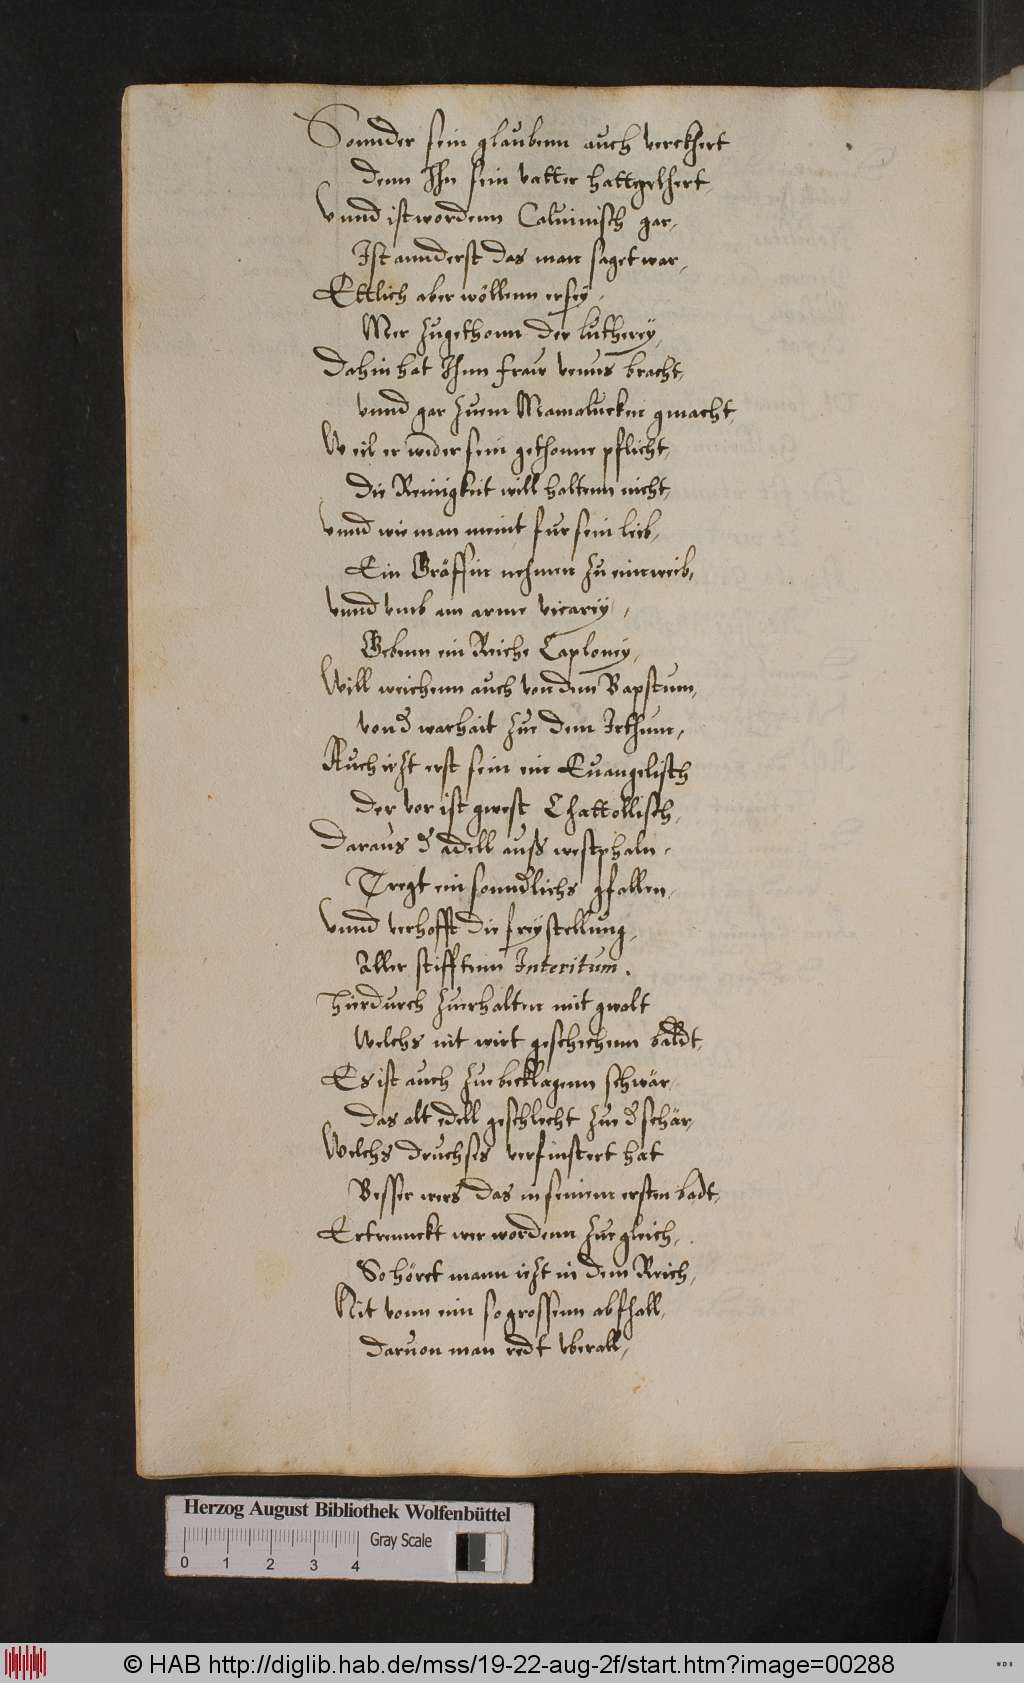 Sonnder sein glaubenn auch verckhert
denn Ihn sein vatter hatt gelhert,
Vnnd ist wordenn Caluinisch gar,
Ist annderst das man saget war,
Ettlich aber wöllenn er sey,
Mer zugethonn der lutherey,
Dahin hat Ihnn fraw venus bracht,
vnnd gar zuem Mamalucken gmacht,
Weil er wider sein gethonne pflicht,
die Reinigkeit will haltenn nicht,
vnnd wie man meint fur sein leib,
Ein Gräffin nehmen zu eim weib,
vnnd vmb ein arme vicarey,
Gebenn ein Reiche Caploney,
Will weichenn auch von dem Bapstum,
von d warhait zue dem Irthum,
Auch iezt erst sein ein Euangelisch
der vor ist gwest Chattollisch,
Daraus d adell auß westphaln,
Tregt ein sonndlichs gfallen,
Vnnd verhofft die freystellung,
Aller stifftenn Interitum.
hierdurch zuerhalten mit gwalt
Welchs nit wirt geschehenn baldt,
Es ist auch zue becklagenn schwär,
das alt edell geschlecht zue d schär,
Welchs druchses verfinstert hat
Besser wers das in seinem ersten badt,
Ertrennckt wer wordenn zue gleich,
So höret mann iezt in dem Reich,
Nit vonn eim so grossenn abfhall,
daruon man redt vberall,
Herzog August Bibliothek Wolfenbüttel
Gray Scale
0 1 2 3 4
© HAB http://diglib.hab.de/mss/19-22-aug-2f/start.htm?image=00288